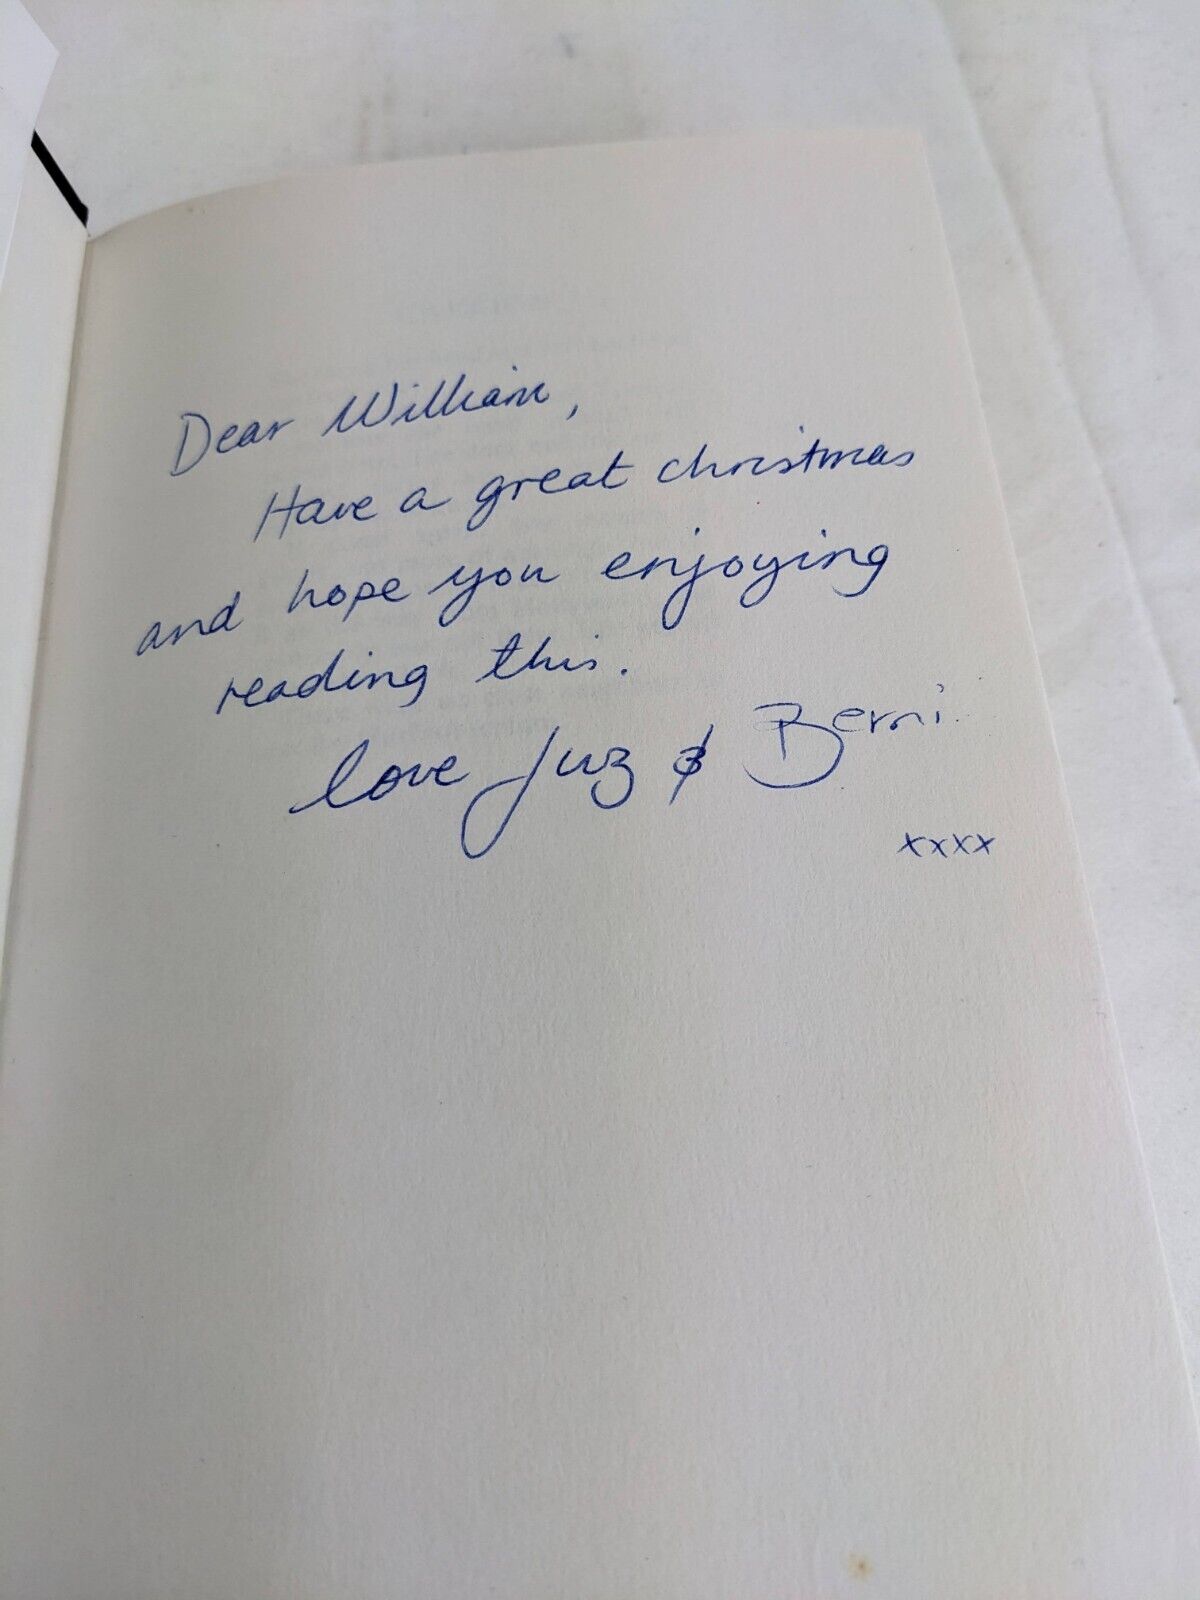 Dear William,
Have a great christmas
and hope you enjoying
reading this.
love Juz & Berni
xxxx